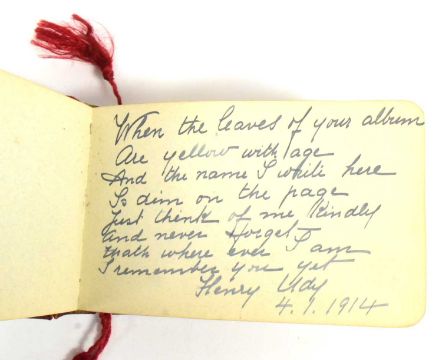 When the leaves of your album
Are yellow with age
And the name I write here
Is dim on the page
Just think of me kindly
And never forget
That where ever I am
I remember you yet
Henry Udy
4.1.1914